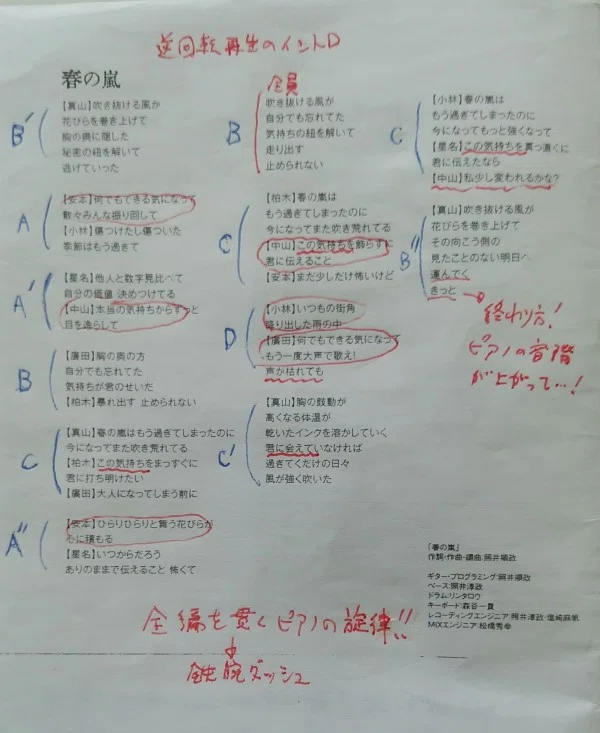 逆回転再生のイントロ
春の嵐
B'
【真山】吹き抜ける風が
花びらを巻き上げて
胸の奥に隠した
秘密の紐を解いて
逃げていった
A
【安本】何でもできる気になって
散々みんな振り回して
【小林】傷つけたし傷ついた
季節はもう過ぎて
A'
【星名】他人と数字見比べて
自分の価値 決めつけてる
【中山】本当の気持ちからずっと
目を逸らして
B
【廣田】胸の奥の方
自分でも忘れてた
気持ちが君のせいだ
【柏木】暴れ出す 止められない
C
【真山】春の嵐はもう過ぎてしまったのに
今になってまた吹き荒れてる
【柏木】この気持ちをまっすぐに
君に打ち明けたい
【廣田】大人になってしまう前に
A''
【安本】ひらりひらりと舞う花びらが
心に積もる
【星名】いつからだろう
ありのままで伝えること 怖くて
全員
B
吹き抜ける風が
自分でも忘れてた
気持ちの紐を解いて
走り出す
止められない
C
【柏木】春の嵐は
もう過ぎてしまったのに
今になってまた吹き荒れてる
【中山】この気持ちを飾らずに
君に伝えること
【安本】まだ少しだけ怖いけど
D
【小林】いつもの街角
降り出した雨の中
【廣田】何でもできる気になって
もう一度大声で歌え!
声が枯れても
C'
【真山】胸の鼓動が
高くなる体温が
乾いたインクを溶かしていく
君に会えていなければ
過ぎてくだけの日々
風が強く吹いた
C
【小林】春の嵐は
もう過ぎてしまったのに
今になってもっと強くなって
【星名】この気持ちを真っ直ぐに
君に伝えたなら
【中山】私少し変われるかな?
B''
【真山】吹き抜ける風が
花びらを巻き上げて
その向こう側の
見たことのない明日へ
運んでく
きっと
終わり方!
ピアノの音階
が上がって…!
「春の嵐」
作詞・作曲・編曲:照井順政
ギター・プログラミング:照井順政
ベース:照井淳政
ドラム:リンタロウ
キーボード:森谷一貴
レコーディングエンジニア:照井淳政・塩崎麻帆
MIXエンジニア:松橋秀幸
全編を貫くピアノの旋律!!
↓
鉄腕ダッシュ